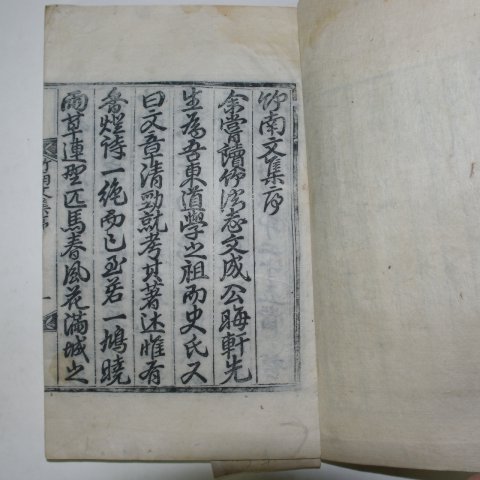 竹南文集序
余嘗讀竹溪志文成公晦軒先
生為吾東道學之祖而史氏又
曰文章清勁就考其著述惟有
香燈詩一絶而已至若一鳩曉
雨草連野匹馬春風花滿城之
竹南文集序
一